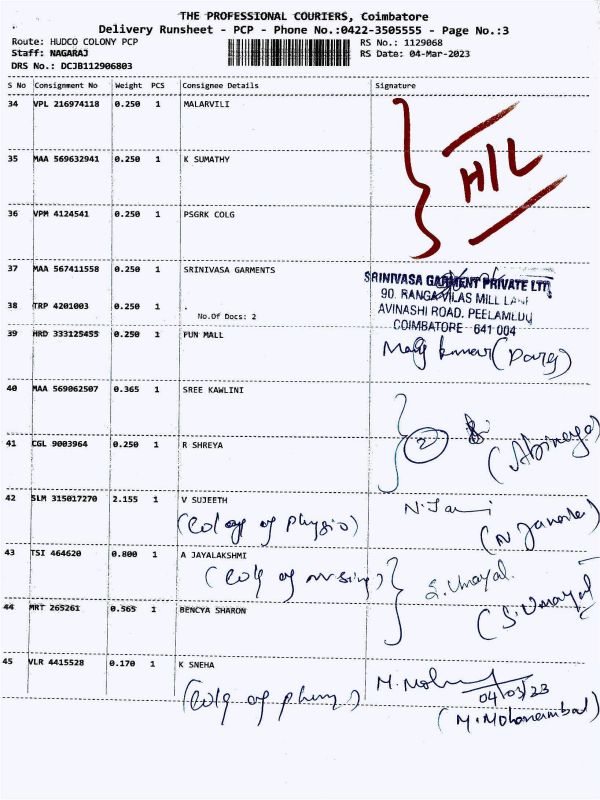 THE PROFESSIONAL COURIERS, Coimbatore
Delivery Runsheet - PCP - Phone No.:0422-3505555 - Page No.:3
Route: HUDCO COLONY PCP RS No.: 1129068
Staff: NAGARAJ RS Date: 04-Mar-2023
DRS No.: DCJB112906803
S No Consignment No Weight PCS Consignee Details Signature
34 VPL 216974118 0.250 1 MALARVILI
H/L
35 MAA 569632941 0.250 1 K SUMATHY
36 VPM 4124541 0.250 1 PSGRK COLG
37 MAA 567411558 0.250 1 SRINIVASA GARMENTS
SRINIVASA GARMENT PRIVATE LTD
90. RANGA VILAS MILL LANE
AVINASHI ROAD, PEELAMEDU
COIMBATORE 641 004
38 TRP 4201003 0.250 1 .
No.Of Docs: 2
39 HRD 333125455 0.250 1 FUN MALL
kumar
40 MAA 569062507 0.365 1 SREE KAWLINI
2 (Abinaya)
41 CGL 9003964 0.250 1 R SHREYA
42 SLM 315017270 2.155 1 V SUJEETH
(Colg of Physio)
N.
43 TSI 464620 0.800 1 A JAYALAKSHMI
(Colg of nursing)
S. Umayal.
(S. Umayal)
44 MRT 265261 0.565 1 BENCYA SHARON
45 VLR 4415528 0.170 1 K SNEHA
(Colg of
04/03/23
(M. Mohanambal)